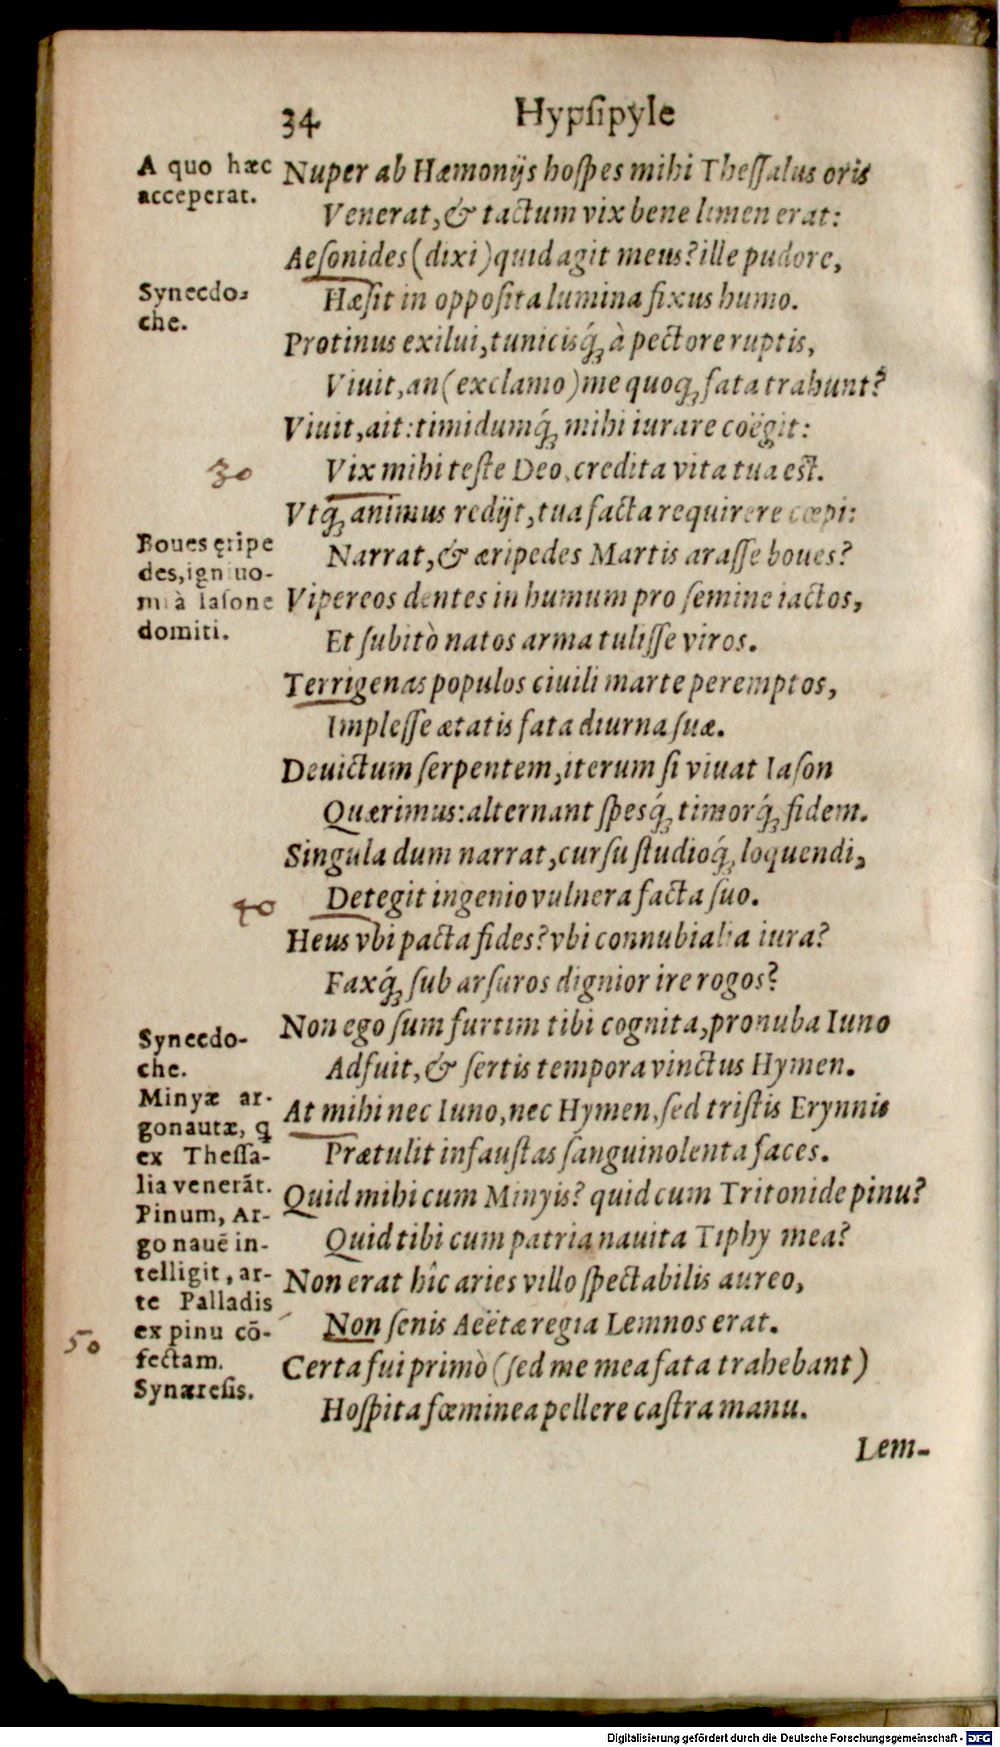 34 Hypſipyle
A quo hæc
acceperat.
Nuper ab Hæmonijs hoſpes mihi Theſſalus oris
Venerat, & tactum vix bene limen erat:
Aeſonides (dixi) quid agit meus? ille pudore,
Synecdo-
che.
Hæſit in oppoſita lumina fixus humo.
Protinus exilui, tunicisq́ꝫ à pectore ruptis,
Viuit, an (exclamo) me quoqꝫ fata trahunt?
Viuit, ait: timidumq́ꝫ mihi iurare coëgit:
30
Vix mihi teſte Deo, credita vita tua eſt.
Vtq́ꝫ animus redijt, tua facta requirere cœpi:
Boues ęripe
des, igniuo-
mi à Iaſone
domiti.
Narrat, & æripedes Martis araſſe boues?
Vipereos dentes in humum pro ſemine iactos,
Et ſubitò natos arma tuliſſe viros.
Terrigenas populos ciuili marte peremptos,
Impleſſe ætatis fata diurna ſuæ.
Deuictum ſerpentem, iterum ſi viuat Iaſon
Quærimus: alternant ſpesq́ꝫ timorq́ꝫ fidem.
Singula dum narrat, curſu ſtudioq́ꝫ loquendi,
40
Detegit ingenio vulnera facta ſuo.
Heus vbi pacta fides? vbi connubialia iura?
Faxq́ꝫ ſub arſuros dignior ire rogos?
Non ego ſum furtim tibi cognita, pronuba Iuno
Synecdo-
che.
Adfuit, & ſertis tempora vinctus Hymen.
Minyæ ar-
gonautæ, q
ex Theſſa-
lia venerãt.
Pinum, Ar-
go nauẽ in-
telligit, ar-
te Palladis
ex pinu cõ-
fectam.
Synæreſis.
At mihi nec Iuno, nec Hymen, ſed triſtis Erynnis
Prætulit infauſtas ſanguinolenta faces.
Quid mihi cum Minyis? quid cum Tritonide pinu?
Quid tibi cum patria nauita Tiphy mea?
Non erat hîc aries villo ſpectabilis aureo,
50
Non ſenis Aeëtæ regia Lemnos erat.
Certa fui primò (ſed me mea fata trahebant)
Hoſpita fœminea pellere caſtra manu.
Lem-
Digitalisierung gefördert durch die Deutsche Forschungsgemeinschaft - DFG